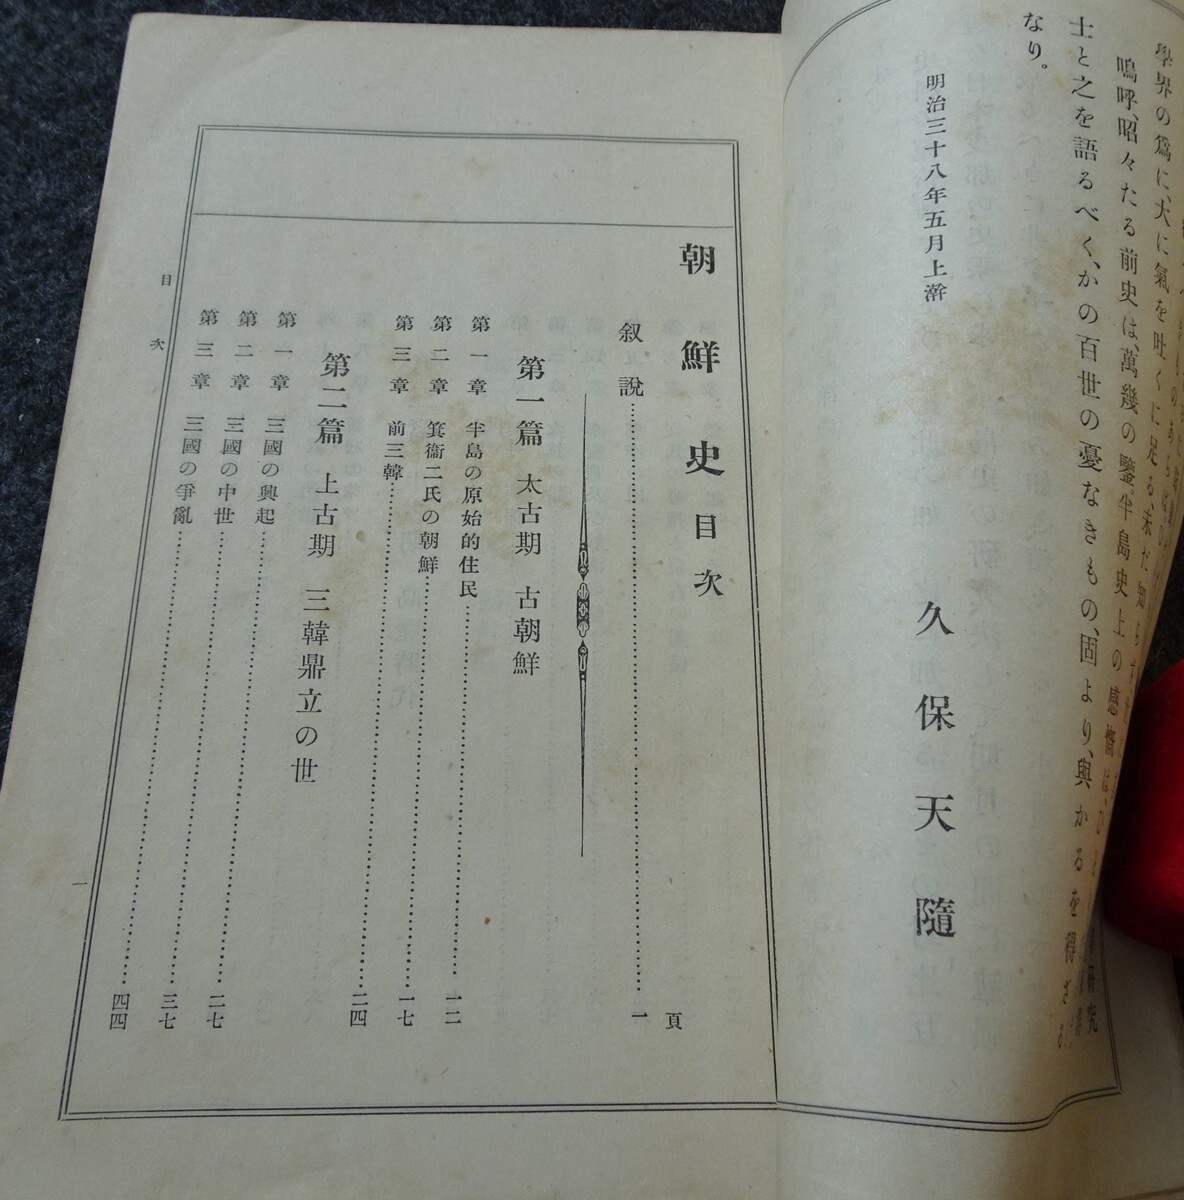 學界の爲に、大に氣を吐くに足る、未だ知らず、
嗚呼、昭々たる前史は、萬幾の鑒、半島史上の感慨は、ひと
士と之を語るべく、かの百世の憂なきもの、固より、與かるを得ざる
なり。
明治三十八年五月上澣
久保天隨
朝鮮史目次
頁
叙說 一
第一篇 太古期 古朝鮮
第一章 半島の原始的住民 一二
第二章 箕衞二氏の朝鮮 一七
第三章 前三韓 二四
第二篇 上古期 三韓鼎立の世
第一章 三國の興起 二七
第二章 三國の中世 三七
第三章 三國の爭亂 四四
目次
一